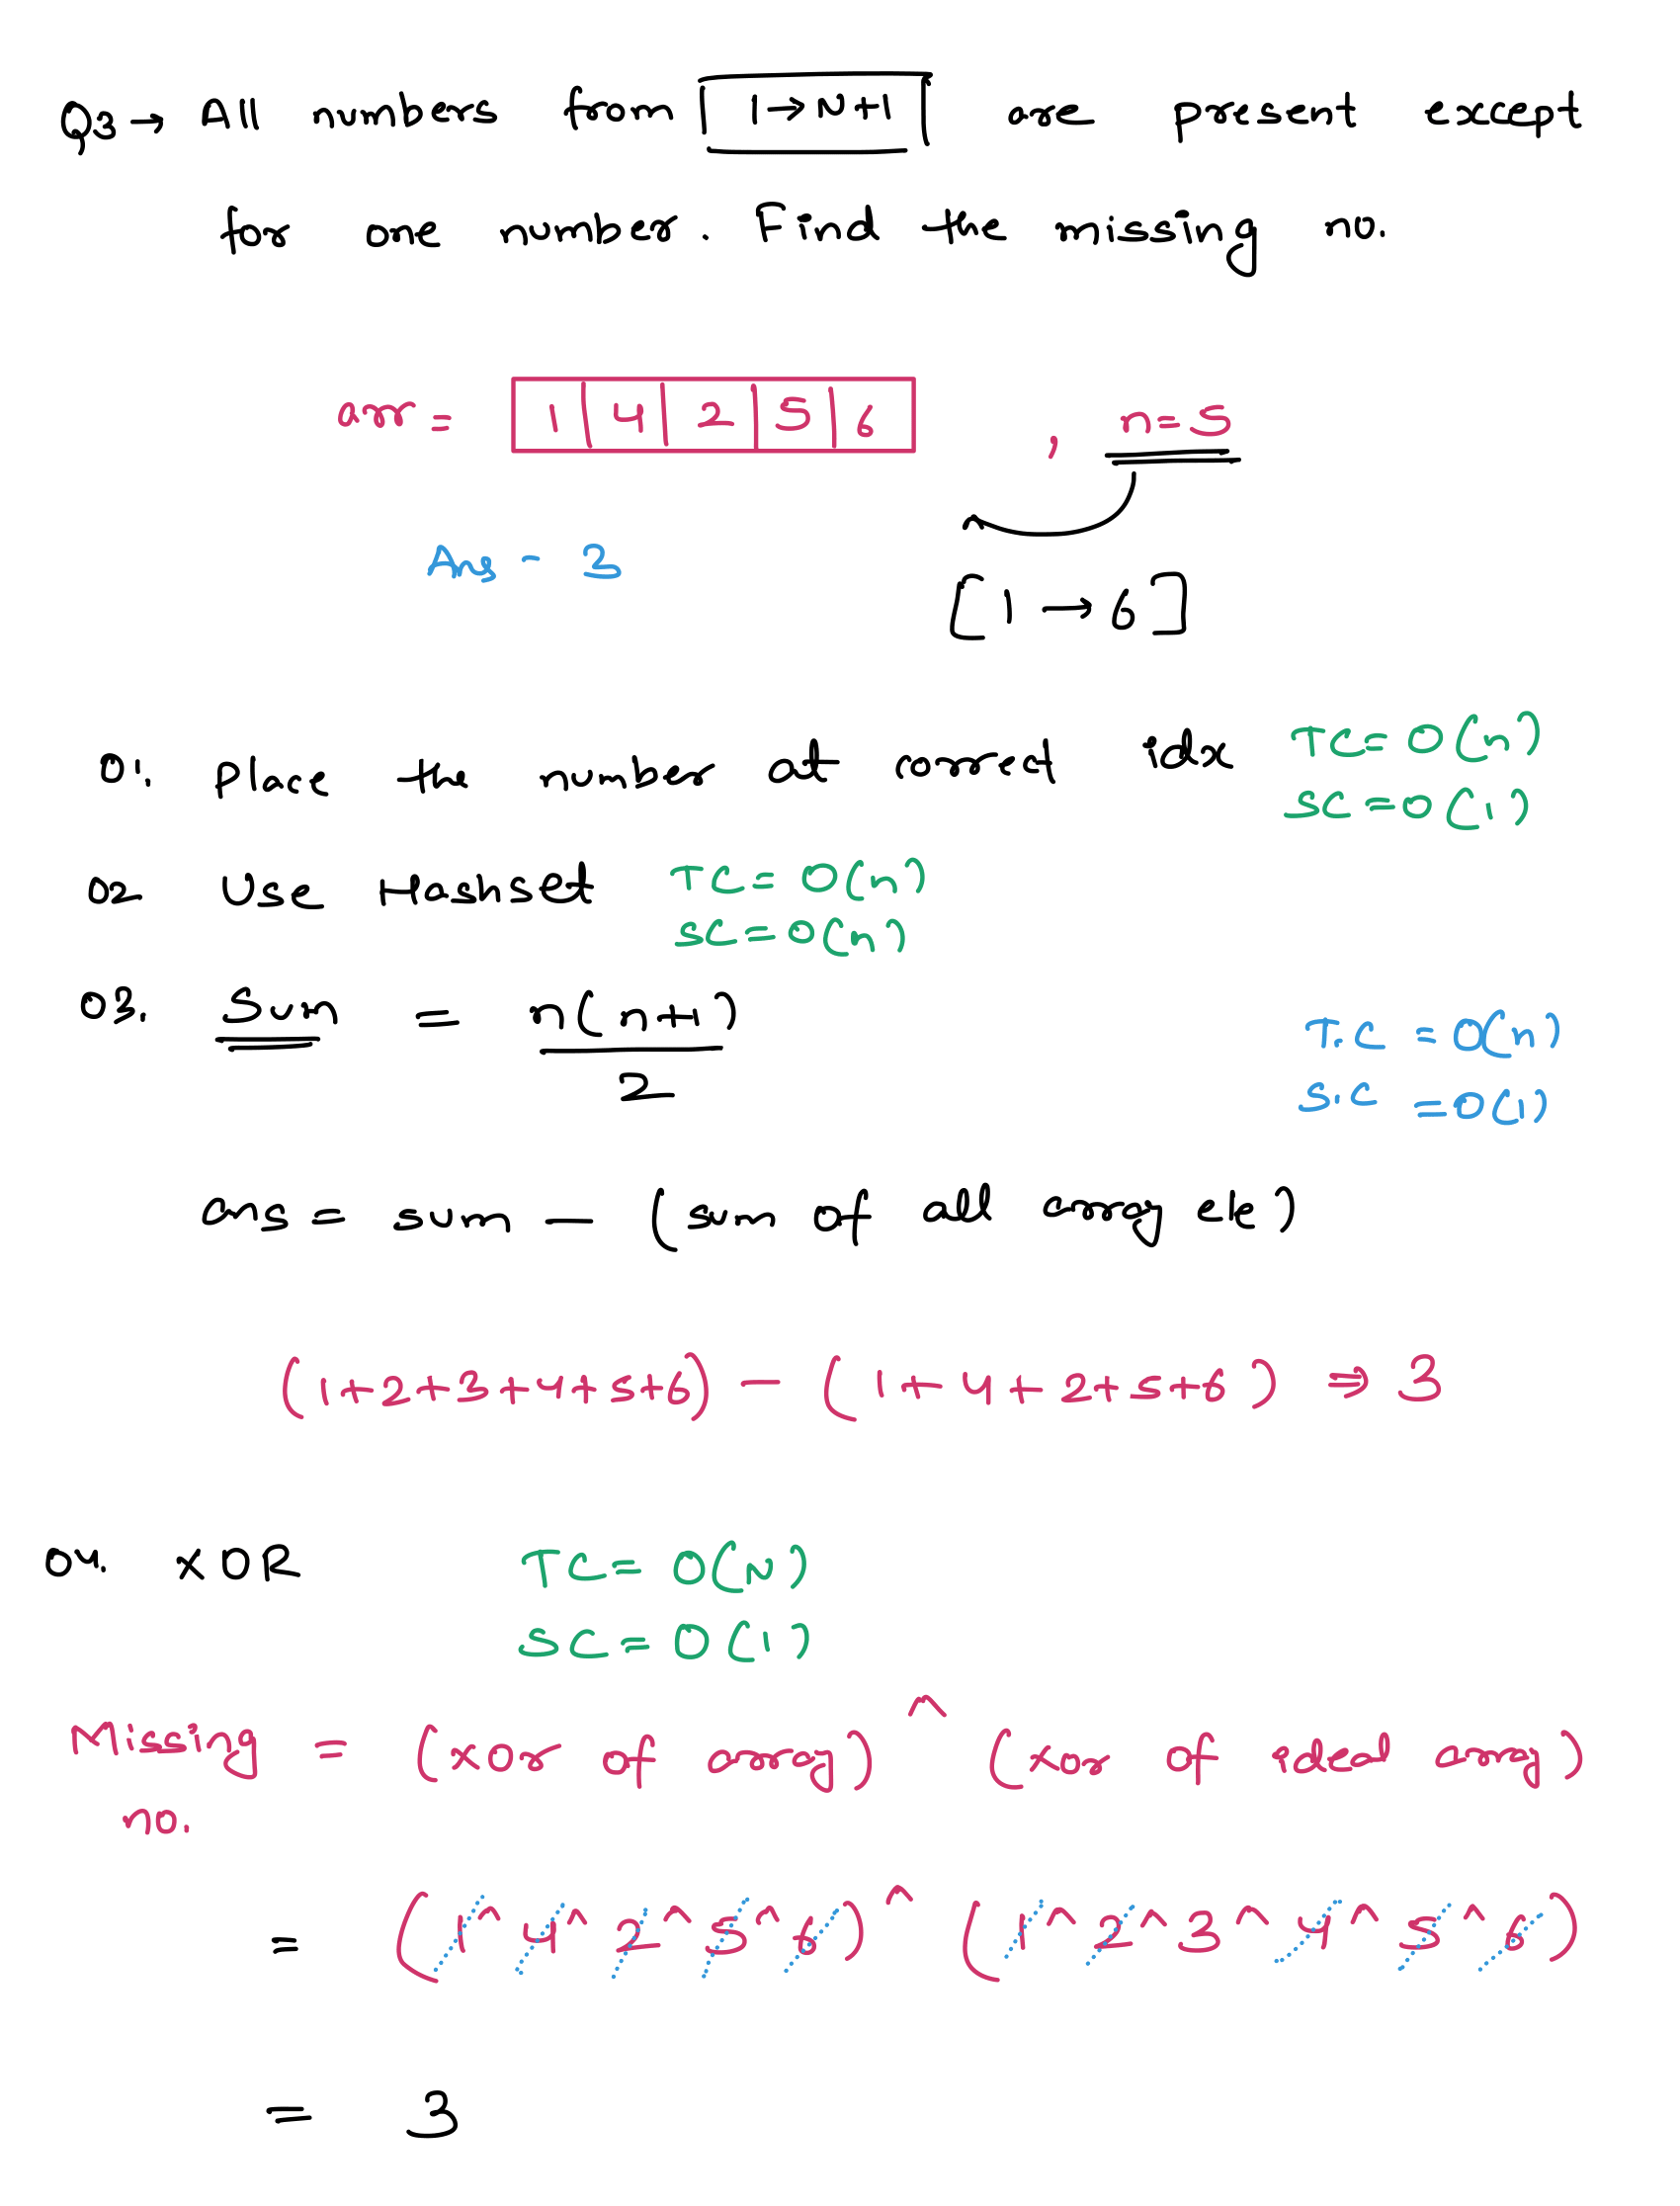 Q3 → All numbers from 1→N+1 are present except
for one number. Find the missing no.
arr = 1 4 2 5 6 , n=5
Ans - 3
[1 → 6]
01. Place the number at correct idx TC= O(n)
SC = O(1)
02 Use Hashset TC= O(n)
SC = O(n)
03. Sum = n(n+1)
2
T.C = O(n)
S.C = O(1)
ans = sum - (sum of all array ele)
(1+2+3+4+5+6) - (1+4+2+5+6) ⇒ 3
04. XOR TC= O(N)
SC= O(1)
Missing no. = (xor of array) ^ (xor of ideal array)
= (1^4^2^5^6) ^ (1^2^3^4^5^6)
= 3